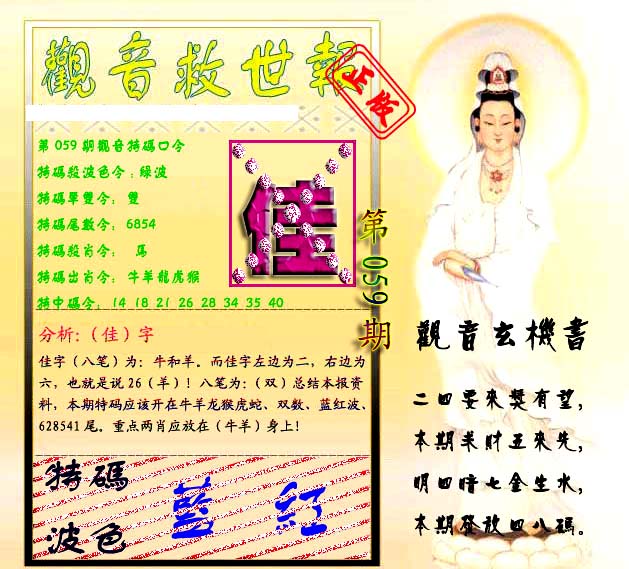 觀音救世報
正版
第059期觀音特碼口令
特碼殺波色令:綠波
特碼單雙令: 雙
特碼尾數令: 6854
特碼殺肖令: 馬
特碼出肖令: 牛羊龍虎猴
特中碼令: 14 18 21 26 28 34 35 40
佳
第059期
分析:(佳)字
佳字(八笔)为:牛和羊。而佳字左边为二,右边为
六,也就是说26(羊)!八笔为:(双)总结本报资
料,本期特码应该开在牛羊龙猴虎蛇、双数、蓝红波、
628541尾。重点两肖应放在(牛羊)身上!
特碼
波色
藍 紅
觀音玄機書
二四要來獎有望,
本期羊財五來先,
明四暗七金生水,
本期發放四八碼。